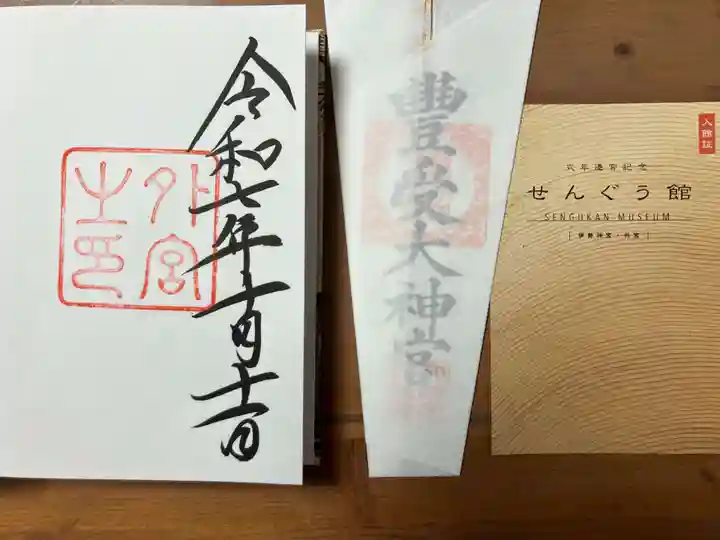 令和七年十月十一日
外宮
之印
豐受大神宮
入館証
式年遷宮記念
せんぐう館
SENGUKAN MUSEUM
[ 伊勢神宮・外宮 ]